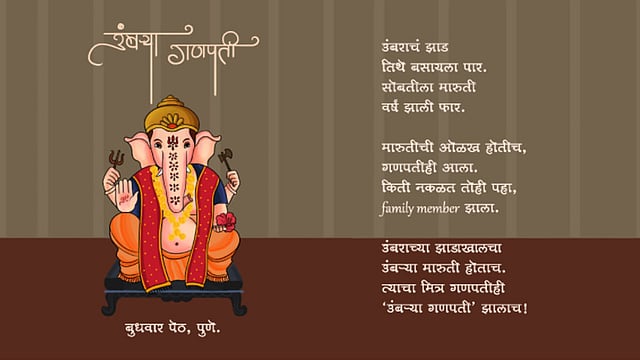 उंबऱ्या गणपती
बुधवार पेठ, पुणे.
उंबराचं झाड
तिथे बसायला पार.
सोबतीला मारुती
वर्षं झाली फार.
मारुतीची ओळख होतीच,
गणपतीही आला.
किती नकळत तोही पहा,
family member झाला.
उंबराच्या झाडाखालचा
उंबऱ्या मारुती होताच.
त्याचा मित्र गणपतीही
‘उंबऱ्या गणपती’ झालाच!